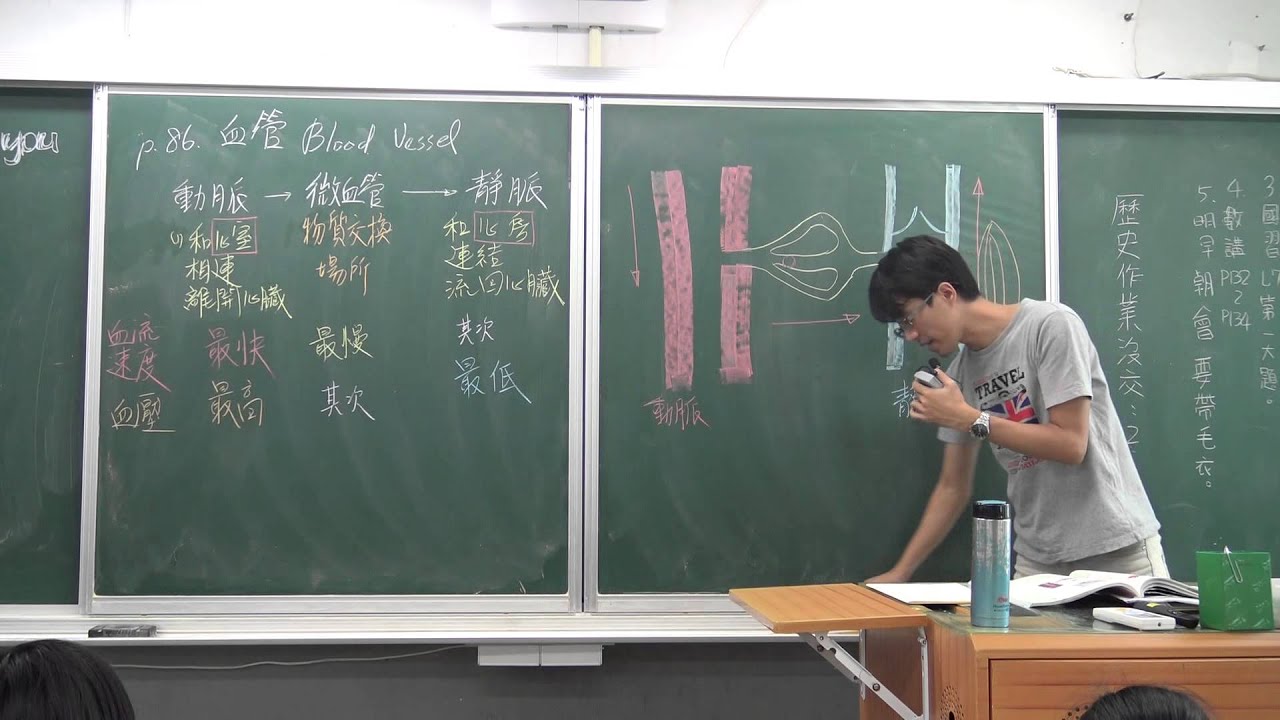 you
p.86. 血管 Blood Vessel
動脈 → 微血管 → 靜脈
(1) 和心室
相連
離開心臟
物質交換
場所
和心房
連結
流回心臟
血流
速度
最快
最慢
其次
血壓
最高
其次
最低
動脈
靜
TRAVEL
歷史作業沒交:2
3.國習L7第一大題。
4.數講P132
P134
5.明早朝會要帶毛衣。